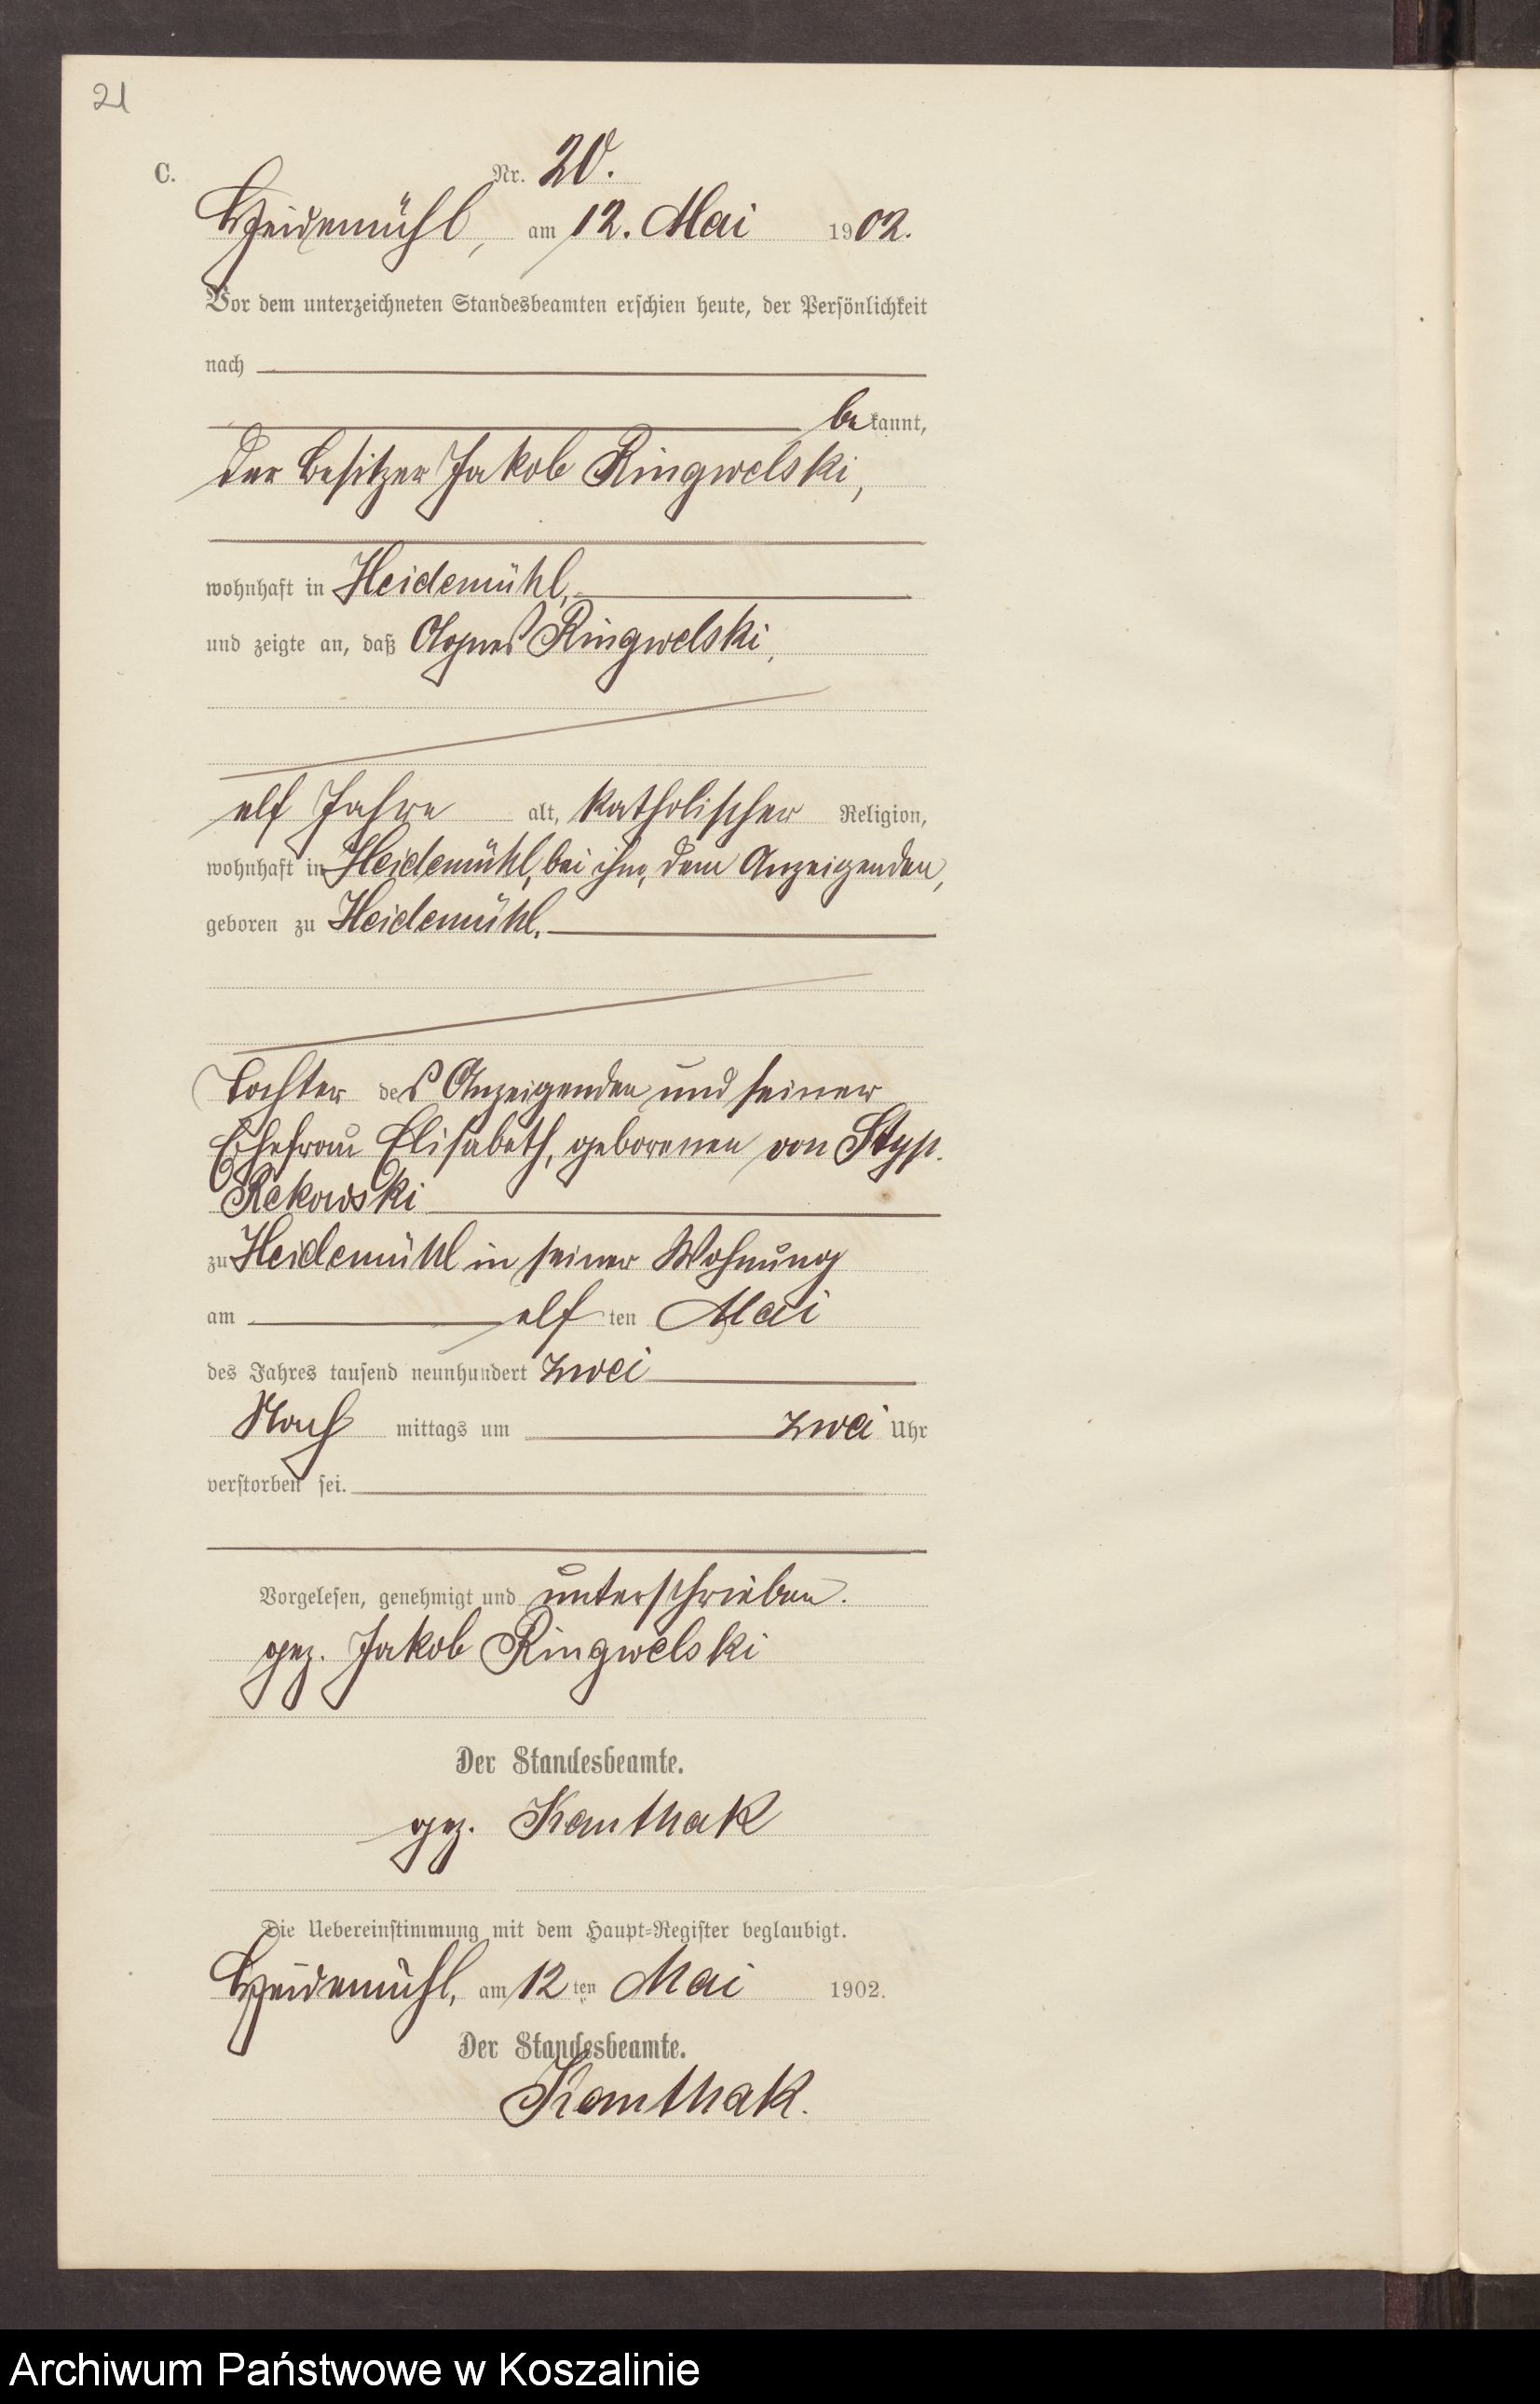 21
C.
Nr. 20.
Heidemühl, am 12. Mai 1902.
Vor dem unterzeichneten Standesbeamten erschien heute, der Persönlichkeit
nach
bekannt,
der Besitzer Jakob Ringwelski,
wohnhaft in Heidemühl,
und zeigte an, daß Agnes Ringwelski,
elf Jahre alt, katholischer Religion,
wohnhaft in Heidemühl, bei ihm, dem Anzeigenden,
geboren zu Heidemühl,
Tochter des Anzeigenden und seiner
Ehefrau Elisabeth, geborenen von Styp.
Rekowski
zu Heidemühl in seiner Wohnung
am elften Mai
des Jahres tausend neunhundert zwei
Nachmittags um zwei Uhr
verstorben sei.
Vorgelesen, genehmigt und unterschrieben.
gez. Jakob Ringwelski
Der Standesbeamte.
gez. Kanthak
Die Uebereinstimmung mit dem Haupt-Register beglaubigt.
Heidemühl, am 12ten Mai 1902.
Der Standesbeamte.
Kanthak.
Archiwum Państwowe w Koszalinie